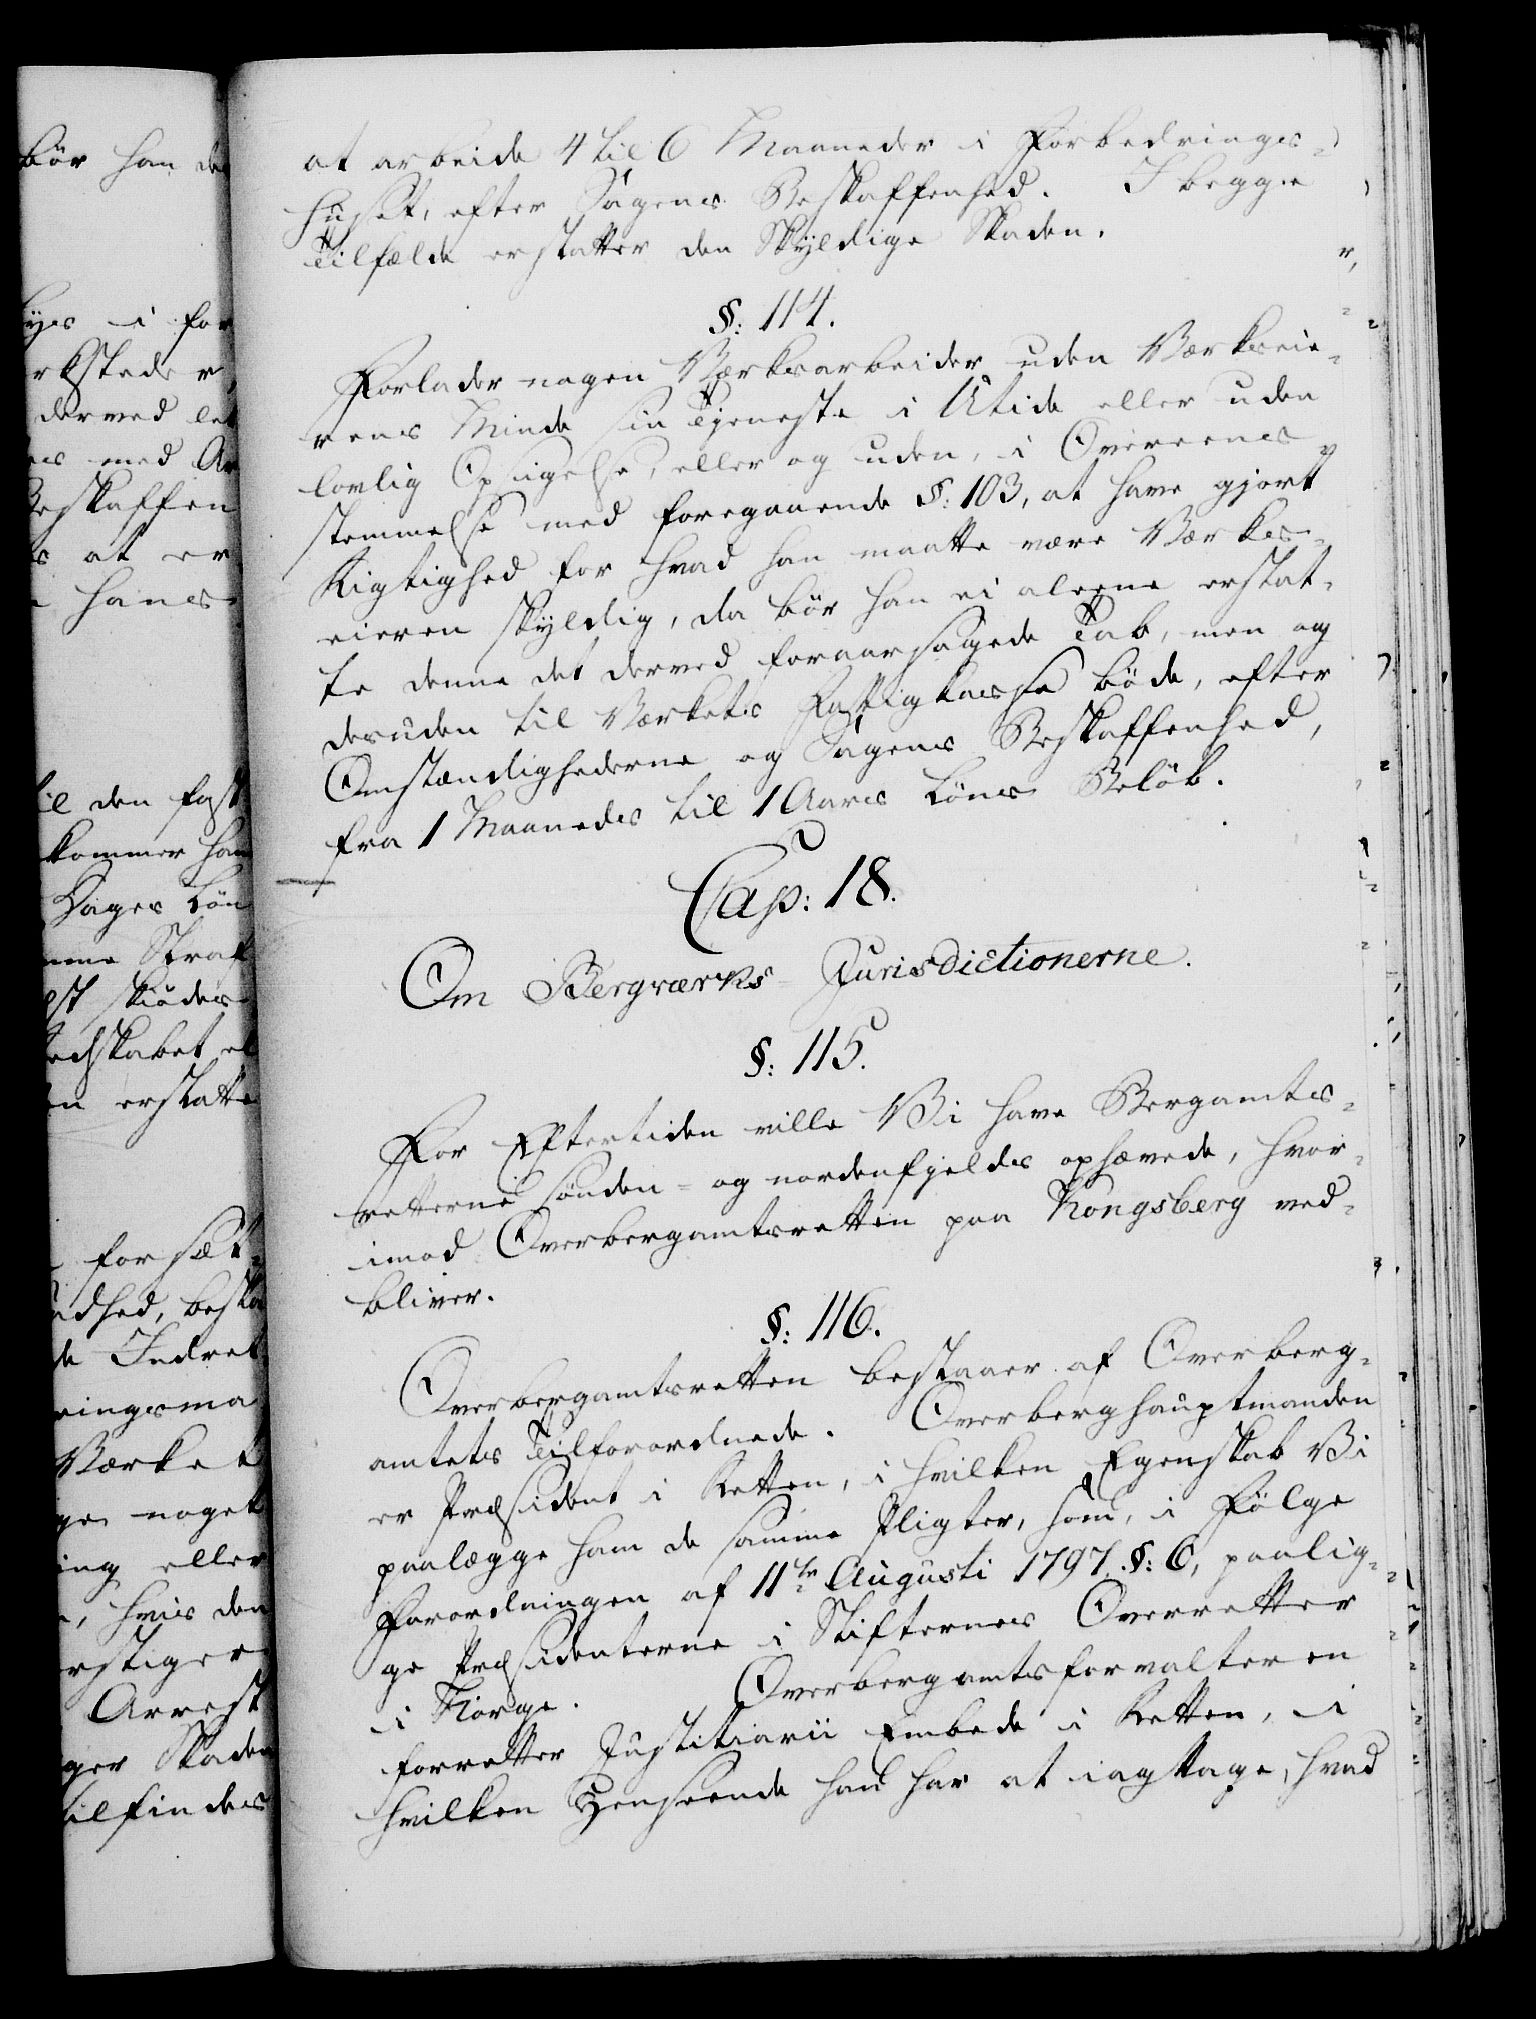 at arbeide 4 til 6 Maaneder i Forbedrings-
huset, efter Sagens Beskaffenhed. I begge
Tilfælde erstatter den Skyldige Skaden.
§: 114.
Forlader nogen Værksarbeider uden Værkseie-
rens Minde sin Tjeneste i Utide eller uden
lovlig Opsigelse, eller og uden, i Overeens-
stemmelse med foregaaende §: 103, at have gjort
Rigtighed for hvad han maatte være Værks-
eieren skyldig, da bör han ei aleene erstat-
te denne det derved foraarsagede Tab, men og
desuden til Værkets Fattigkasse böde, efter
Omstændighederne og Sagens Beskaffenhed,
fra 1 Maaneds til 1 Aars Löns Belöb.
Cap: 18.
Om Bergværks-Jurisdictionerne.
§: 115.
For Eftertiden ville Vi have Bergamts-
retterne sönden- og nordenfjelds ophævede, hvor-
imod Overbergamtsretten paa Kongsberg ved-
bliver.
§: 116.
Overbergamtsretten bestaaer af Overberg-
amtets Tilforordnede. Overberghauptmanden
er Præsident i Retten, i hvilken Egenskab Vi
paalægge ham de samme Pligter, som, i Fölge
Forordningen af 11te Augusti 1797. §: 6, paalig-
ge Præsidenterne i Stifternes Overretter
i Norge. Overbergamtsforvalteren
forretter Justitiarii Embede i Retten, i
hvilken Henseende han har at iagttage, hvad